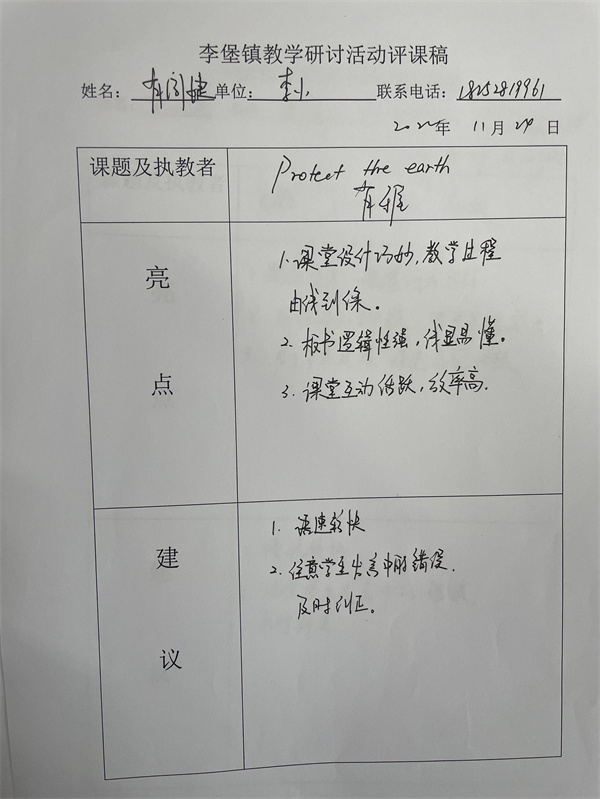 李堡镇教学研讨活动评课稿
姓名： 单位：李小 联系电话：18252819961
2022年 11月 29 日
课题及执教者
Protect the earth
亮点
1.课堂设计巧妙，教学过程
由浅到深。
2. 板书逻辑性强，浅显易懂。
3. 课堂互动活跃，效率高.
建议
1. 语速稍快
2. 注意学生发言中的错误.
及时纠正。